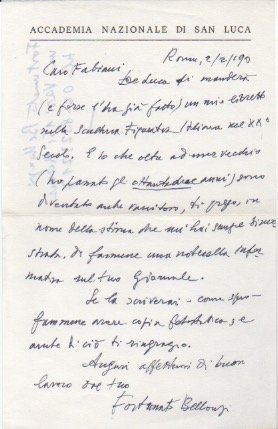 ACCADEMIA NAZIONALE DI SAN LUCA
Roma, 2/2/190
Caro Fabiani,
De Luca di manderà
(e forse l'ha già fatto) un mio libretto
sulla Scultura Figurativa Italiana nel XX°
Secolo. E io che oltre ad esser vecchio
(ho passato gli ottantadue anni) sono
diventato anche vanitoso, ti prego, in
nome della stima che m'hai sempre dimo-
strata, di farmene una noterella infor-
mativa sul tuo Giornale.
Se la scriverai - come spero
fammene avere copia fotostatica; e
anche di ciò ti ringrazio.
Auguri affettuosi di buon
lavoro dal tuo
Fortunato Bellonzi